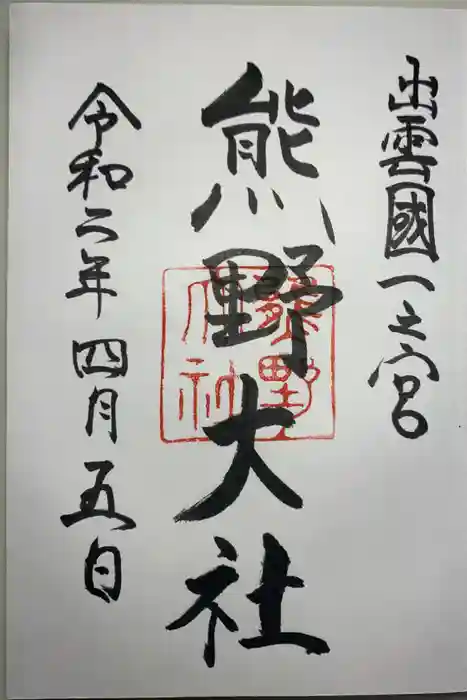 出雲國一之宮
熊野大社
令和二年四月五日
熊野大社